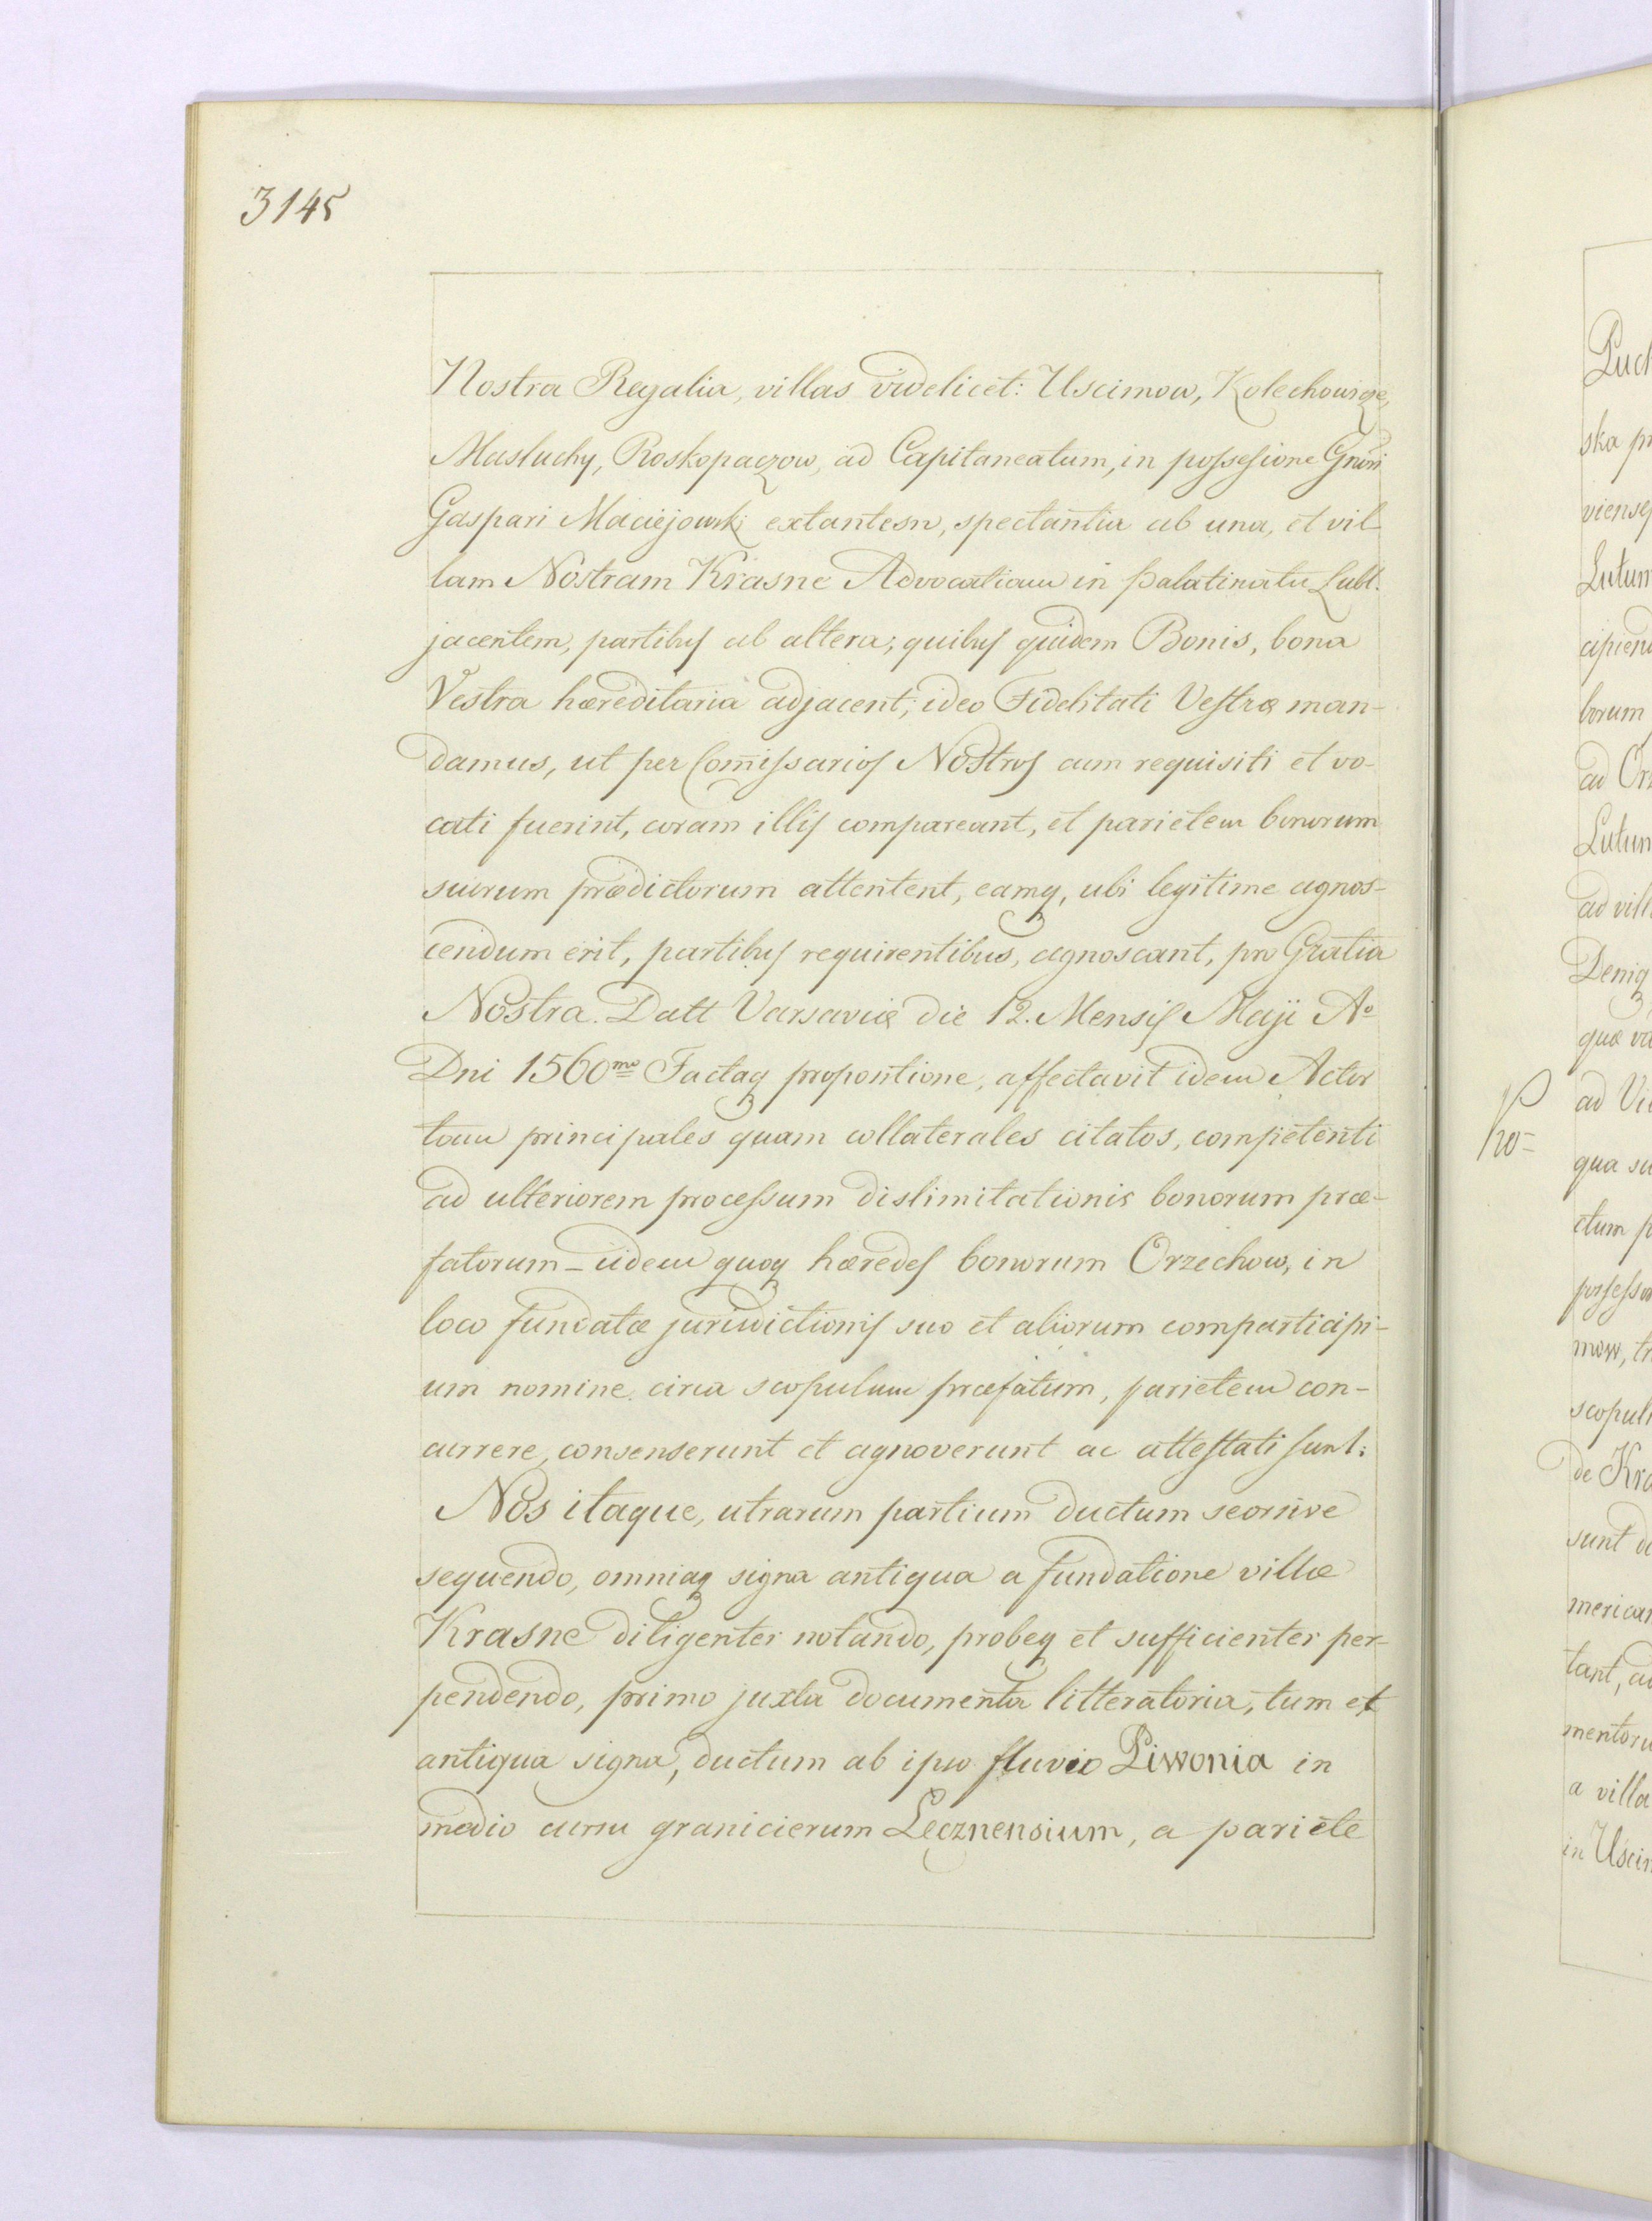 3145
Nostra Regalia, villas videlicet: Uscimow, Kolechowicze,
Masluchy, Roskopaczow, ad Capitaneatum, in possesione Gnōsi
Gaspari Maciejowski extantesn, spectantia ab una, et vil-
lam Nostram Krasne Advocatiam in palatinatu Lubl.
jacentem, partibus ab altera; quibus quidem Bonis, bona
Vestra hæreditaria adjacent; ideo Fidelitati Vestræ man-
damus, ut per Com̄issarios Nostros cum requisiti et vo-
cati fuerint, coram illis compareant, et parietem bonorum
suorum prædictorum attentent, eamq, ubi legitime agnos-
cendum erit, partibus requirentibus, agnoscant, pro Gratia
Nostra. Datt Varsaviæ die 12. Mensis Maji Aº
Dni 1560mo Factaq propontione, affectavit idem Actor
tam principales quam collaterales citatos, competenti
ad ulteriorem processum dislimitationis bonorum præ-
fatorum – iidem quoq hæredes bonorum Orzechow, in
loco fundatæ jurisdictionis suo et aliorum comparticipi-
um nomine circa scopulum præfatum, parietem con-
currere, consenserunt et agnoverunt ac attestati sunt:
Nos itaque, utrarum partium ductum seorsive
sequendo, omniaq signa antiqua a fundatione villæ
Krasne diligenter notando, probeq et sufficienter per-
pendendo, primo juxta documenta litteratoria, tum et
antiqua signa, ductum ab ipso fluvio Piwonia in
medio cursu granicierum Lecznensium, a pariete